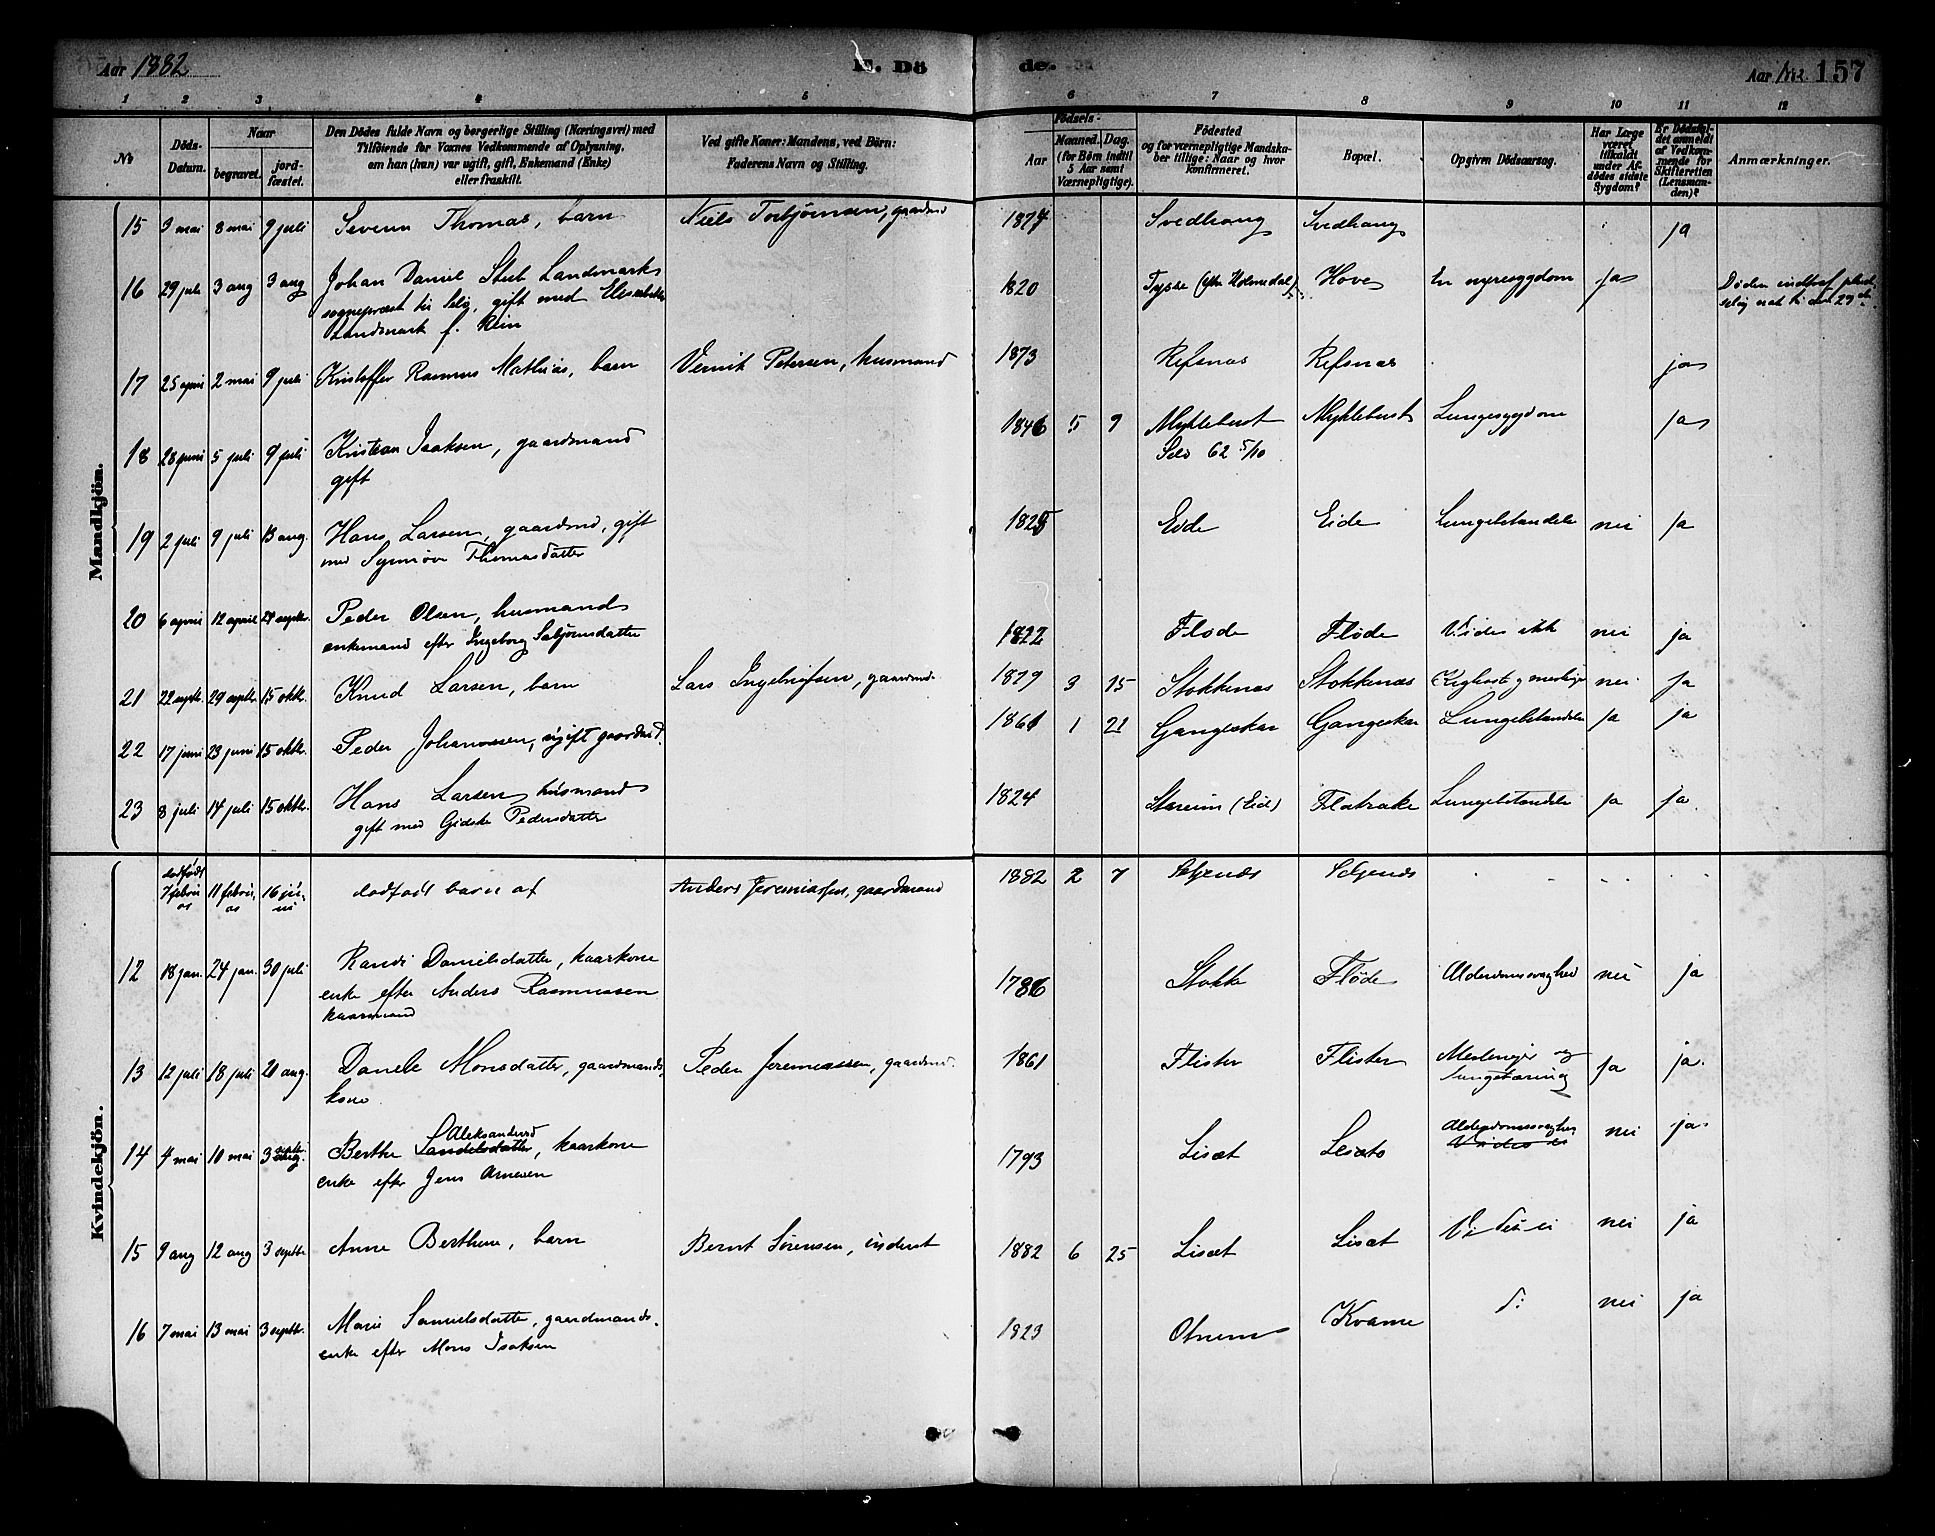 Aar 1882
E. Dö
de.
Aar 1882. 157
1 2 3 4 5 6 7 8 9 10 11 12
No
Döds-
Datum.
Naar
begravet.
jord-
fæstet.
Den Dödes fulde Navn og borgerlige Stilling (Næringsvei) med
Tilföiende for Voxnes Vedkommende af Oplysning,
om han (hun) var ugift, gift, Enkemand (Enke)
eller fraskilt.
Ved gifte Koner: Mandens, ved Börn:
Faderens Navn og Stilling.
Födsels-
Aar
Maaned. Dag.
(for Börn indtil
5 Aar samt
Værnepligtige).
Födested
og for værnepligtige Mandska-
ber tillige: Naar og hvor
konfirmeret.
Bopæl.
Opgiven Dödsaarsag.
Har Læge
været
tilkaldt
under Af-
dödes sidste
Sygdom?
Er Dödsfal-
det anmeldt
af Vedkom-
mende for
Skifteretten
(Lensman-
den)?
Anmærkninger.
Mandkjön.
15 9 mai 8 mai 9 juli Severin Thomas, barn Niels Torbjørnsen, gaardmd 1877 Svedhaug Svedhaug ja
16 29 juli 3 aug 3 aug Johan Daniel Stub Landmark 1820 Tysse (Holmedal) Hove En nyresygdom Ja Døden indtraf plud-
sognepræst til Selø, gift med Elisabeth selig nat til den 29de
Landmark f. Rein
17 25 april 2 mai 9 juli Kristoffer Rasmus Mathias, barn Vernik Petersen, husmand 1873 Refsnæs Refsnæs ja
18 28 juni 5 juli 9 juli Kristian Isaksen, gaardmand 1846 5 9 Myklebust Myklebust Lungesygdom ja
gift Selø 62 5/10
19 2 juli 9 juli 13 aug. Hans Larsen, gaardmd, gift 1825 Eide Eide Lungebetændelse nei ja
med Synnøve Thomasdatter
20 6 april 12 april 24 septbr. Peder Olsen, husmand 1822 Fløde Fløde Vides ikke nei ja
enkemand efter Ingeborg Sebjørnsdatter
21 22 septbr. 29 septbr. 15 oktbr. Knud Larsen, barn Lars Ingebrigtsen, gaardmd. 1879 3 15 Stokkenæs Stokkenæs Kighoste og meslinger nei ja
22 17 juni 23 juni 15 oktbr. Peder Johannessen, ugift gaardmd. 1861 1 21 Gangeskar Gangeskar Lungebetændelse ja ja
23 8 juli 14 juli 15 oktbr. Hans Larsen, husmand 1824 Stareim (Eid) Flatrake Lungebetændelse ja ja.
gift med Gidske Pedersdatter
Kvindekjön.
dødfødt
7 februar 11 februar 16 juni dødfødt barn af Anders Jeremiassen, gaardmand 1882 2 7 Seljenæs Seljenæs
12 18 jan. 24 jan. 30 juli Randi Danielsdatter, kaarkone 1786 Stokke Fløde Alderdomssvaghed nei ja
enke efter Anders Rasmussen
kaarmand
13 12 juli 18 juli 20 aug. Danele Monsdatter, gaardmands- Peder Jeremiassen, gaardmd. 1861 Flister Flister Meslinger og ja ja.
kone. lungetæring
14 4 mai 10 mai 3 septbr. Berthe Aleksandersd, kaarkone 1793 Lisæt Lisæt Alderdomssvaghed nei ja
enke efter Jens Arnesen
15 9 aug 12 aug 3 septbr Anne Berthine, barn Bernt Sørensen, inderst 1882 6 25 Lisæt Lisæt Vides ei nei ja
16 7 mai 13 mai 3 septbr. Marie Samuelsdatter, gaardmands- 1823 Otnem Kvame do nei ja
enke efter Mons Isaksen